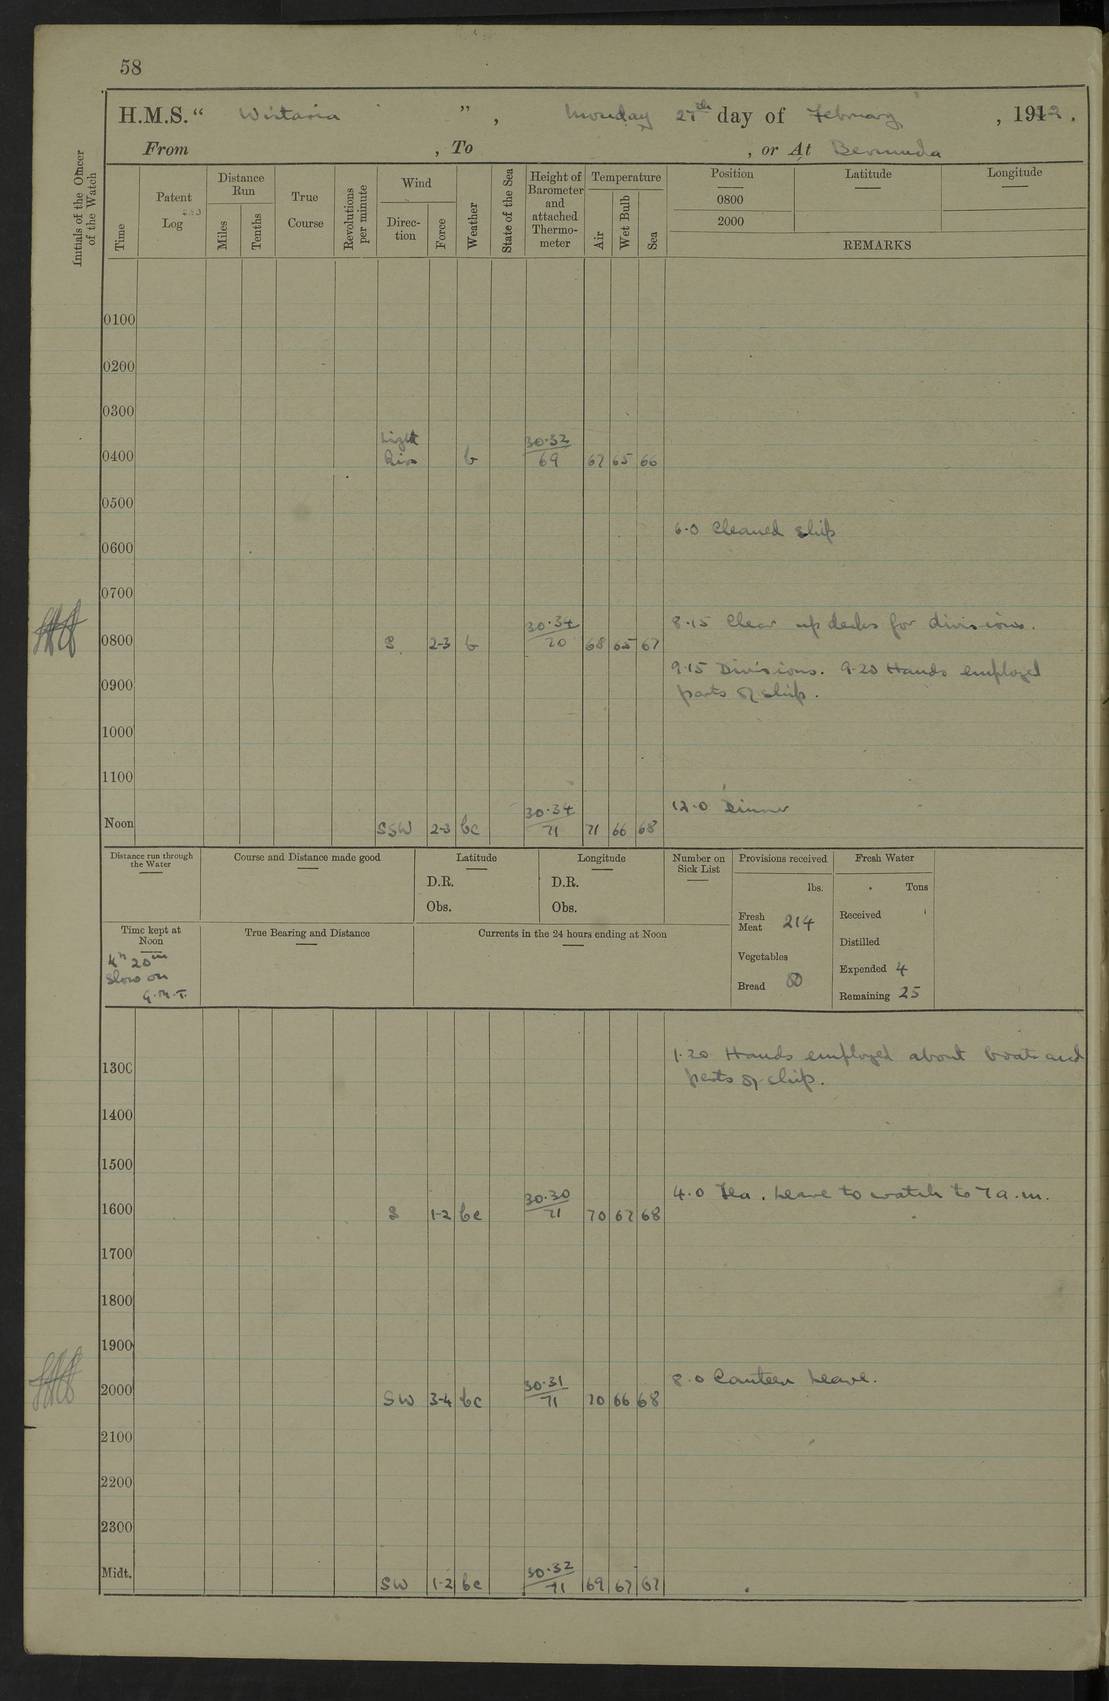 58
H.M.S. “ Wistaria ” , Monday 27th day of February , 1922 .
From , To , or At Bermuda
Initials of the Officer of the Watch
Time
Patent Log
Distance Run
Miles
Tenths
True Course
Revolutions per minute
Wind
Direc-tion
Force
Weather
State of the Sea
Height of Barometer and attached Thermo-meter
Temperature
Air
Wet Bulb
Sea
Position
0800
2000
Latitude
Longitude
REMARKS
0100
0200
0300
Light
0400 Airs b 30·32 / 69 67 65 66
0500
6·0 Cleaned ship
0600
0700
8·15 Clear up decks for divisions.
0800 S 2-3 b 30·34 / 70 68 65 67
9·15 Divisions. 9·20 Hands employed
0900 parts of ship.
1000
1100
12·0 Dinner
Noon SSW 2-3 bc 30·34 / 71 71 66 68
Distance run through the Water
Course and Distance made good
Latitude
D.R.
Obs.
Longitude
D.R.
Obs.
Number on Sick List
Provisions received
lbs.
Fresh Meat 214
Vegetables
Bread 80
Fresh Water
Tons
Received
Distilled
Expended 4
Remaining 25
Time kept at Noon
4h 20m
slow on
G.M.T.
True Bearing and Distance
Currents in the 24 hours ending at Noon
1·20 Hands employed about boats and
1300 parts of ship.
1400
1500
4·0 Tea. Leave to watch to 7 a.m.
1600 S 1-2 bc 30·30 / 71 70 67 68
1700
1800
1900
8·0 Canteen Leave.
2000 SW 3-4 bc 30·31 / 71 70 66 68
2100
2200
2300
Midt. SW 1-2 bc 30·32 / 71 69 67 67